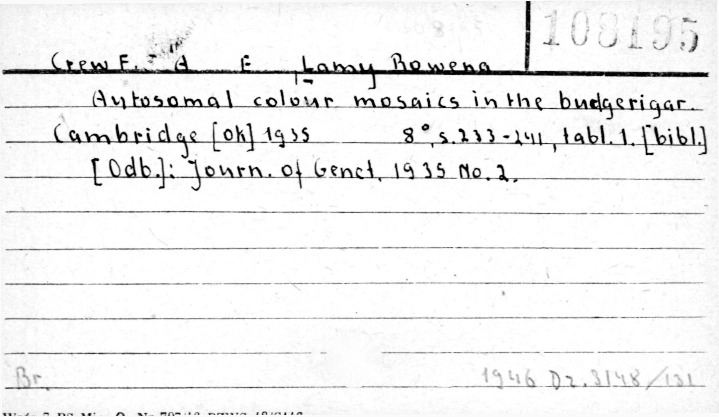 108195
Crew F. A E , Lamy Rowena
Autosomal colour mosaics in the budgerigar.
Cambridge [Ok] 1935 8°, s. 233-241, tabl. 1. [bibl.]
[Odb.]: Journ. of Genet. 1935 No. 2.
Br. 1946 Dz. 3148/131